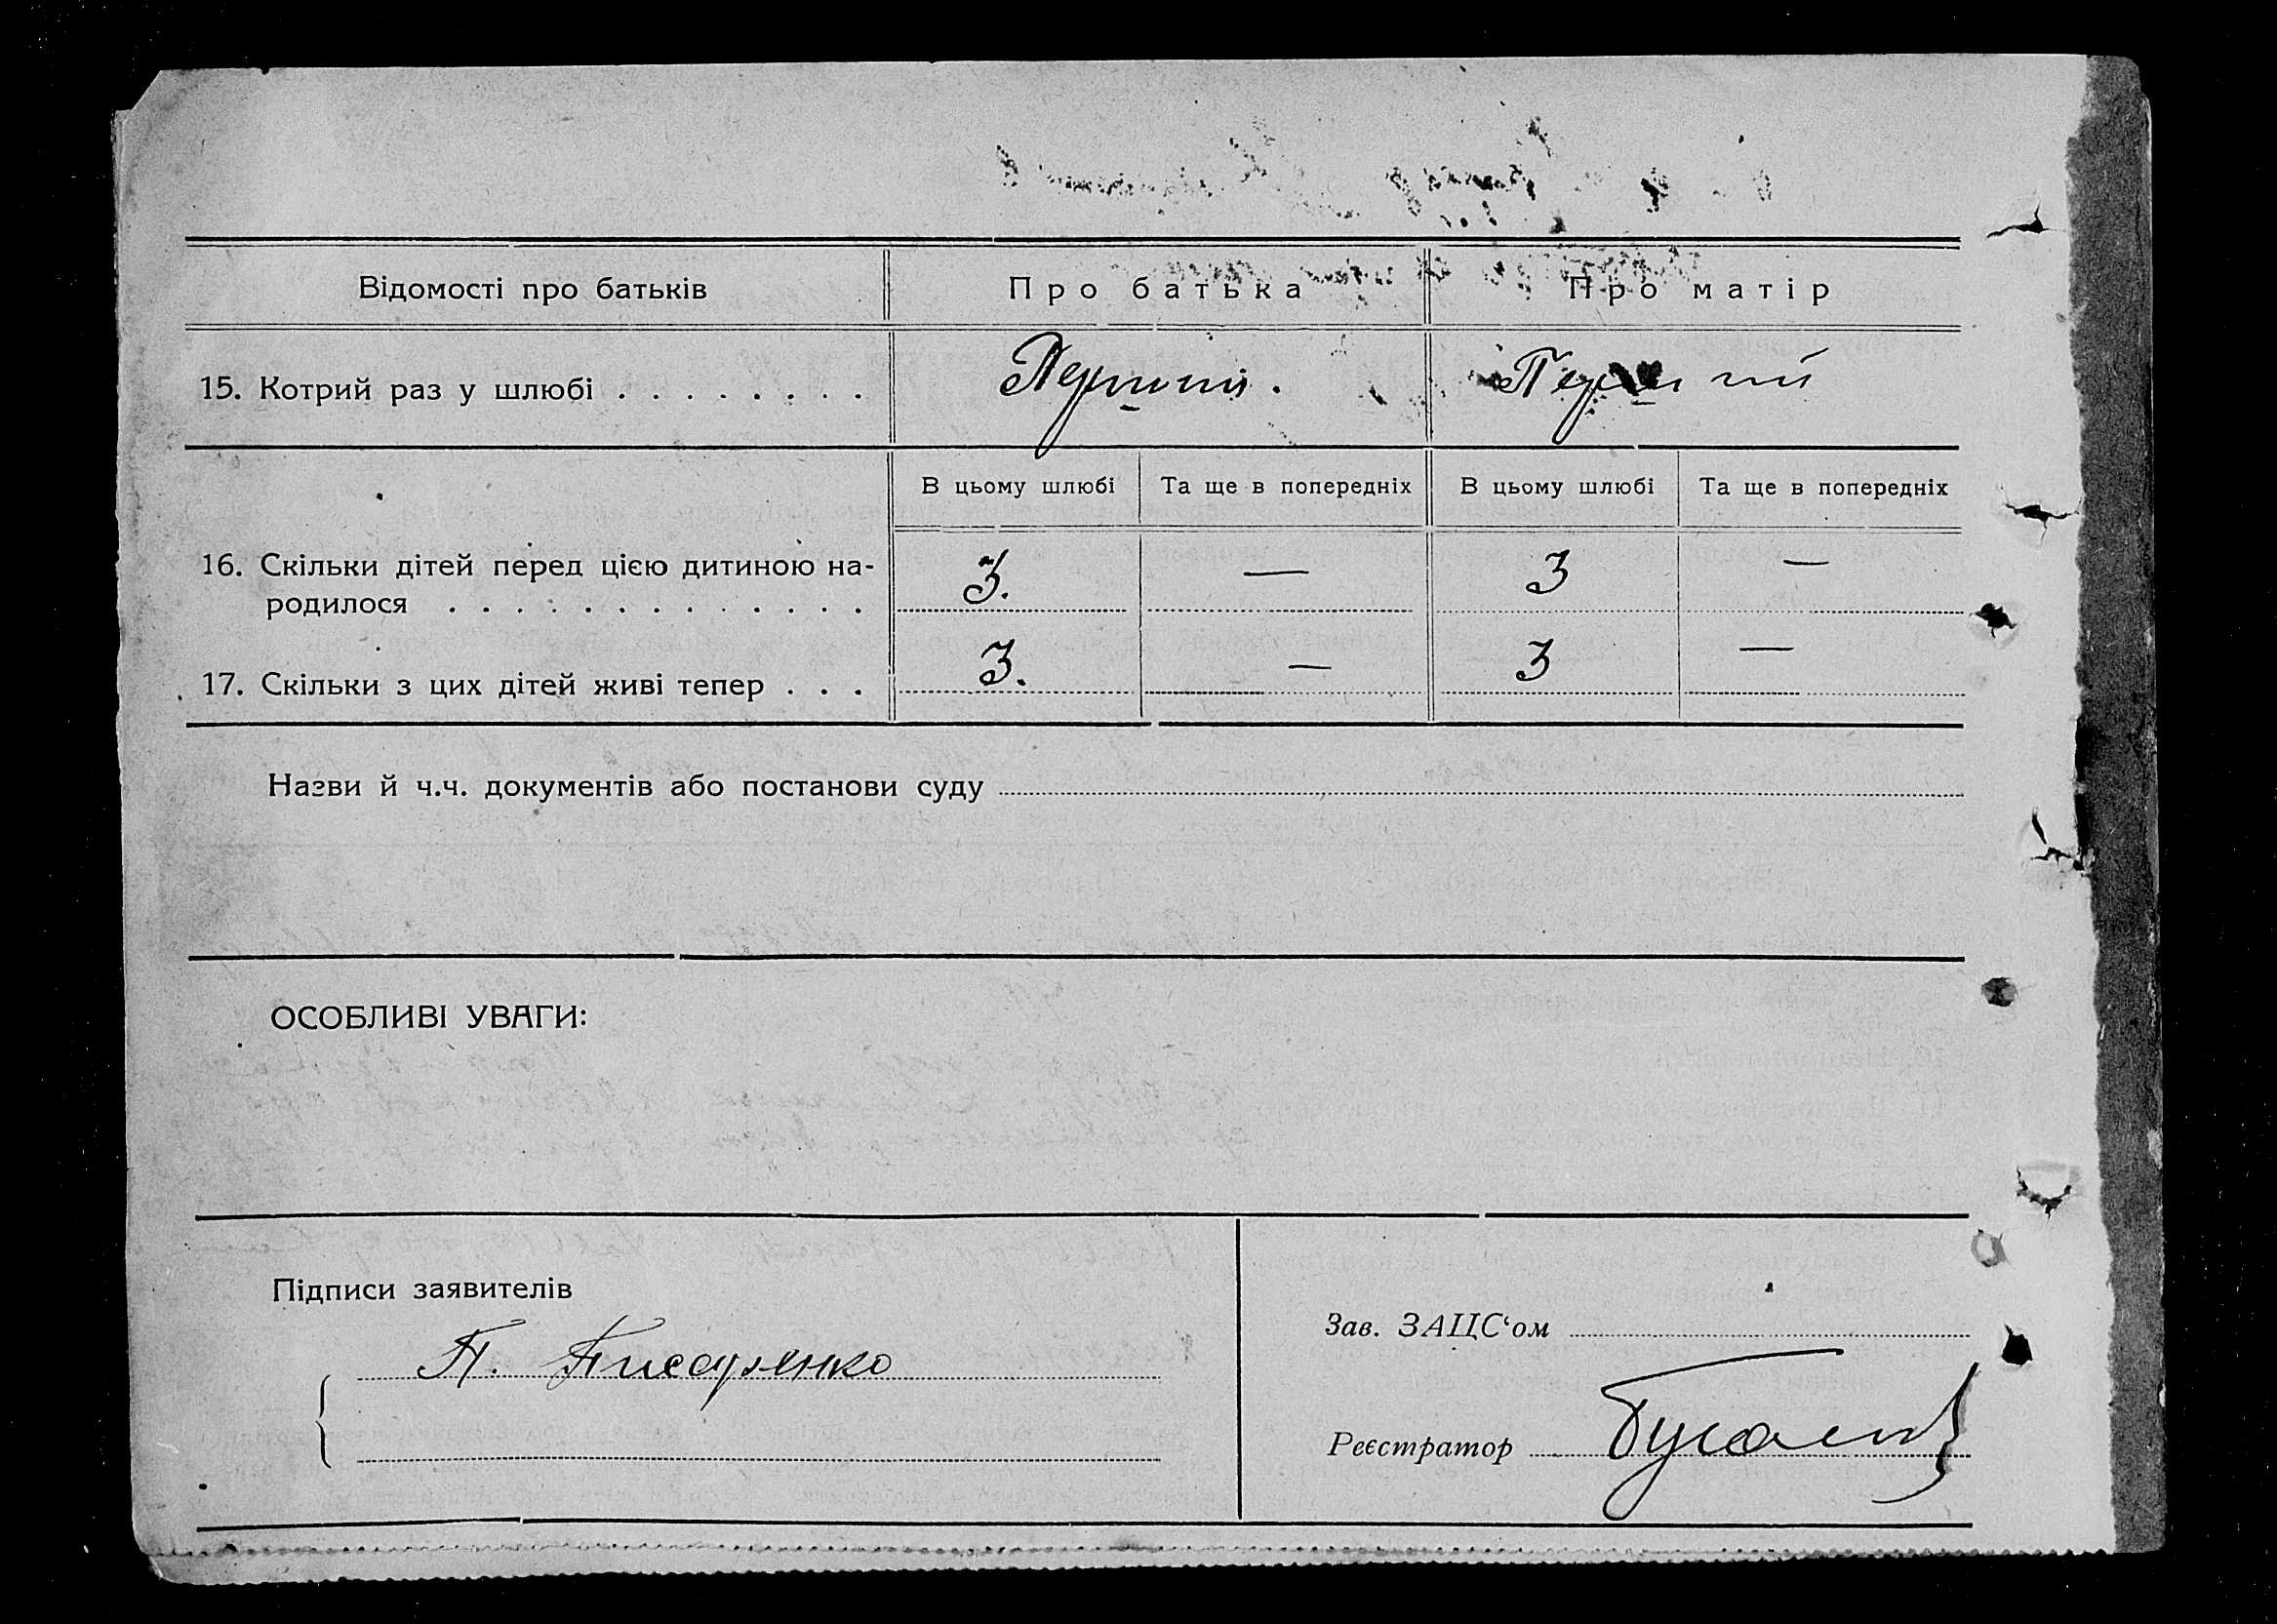 Відомості про батьків Про батька Про матір
15. Котрий раз у шлюбі . . . . . . . . Перший. Перший
В цьому шлюбі Та ще в попередніх В цьому шлюбі Та ще в попередніх
16. Скільки дітей перед цією дитиною на-
родилося . . . . . . . . . . . . . 3. — 3 —
17. Скільки з цих дітей живі тепер . . . 3. — 3 —
Назви й ч.ч. документів або постанови суду
ОСОБЛИВІ УВАГИ:
Підписи заявителів
Зав. ЗАЦС‘ом
П. Писаренко
Реєстратор